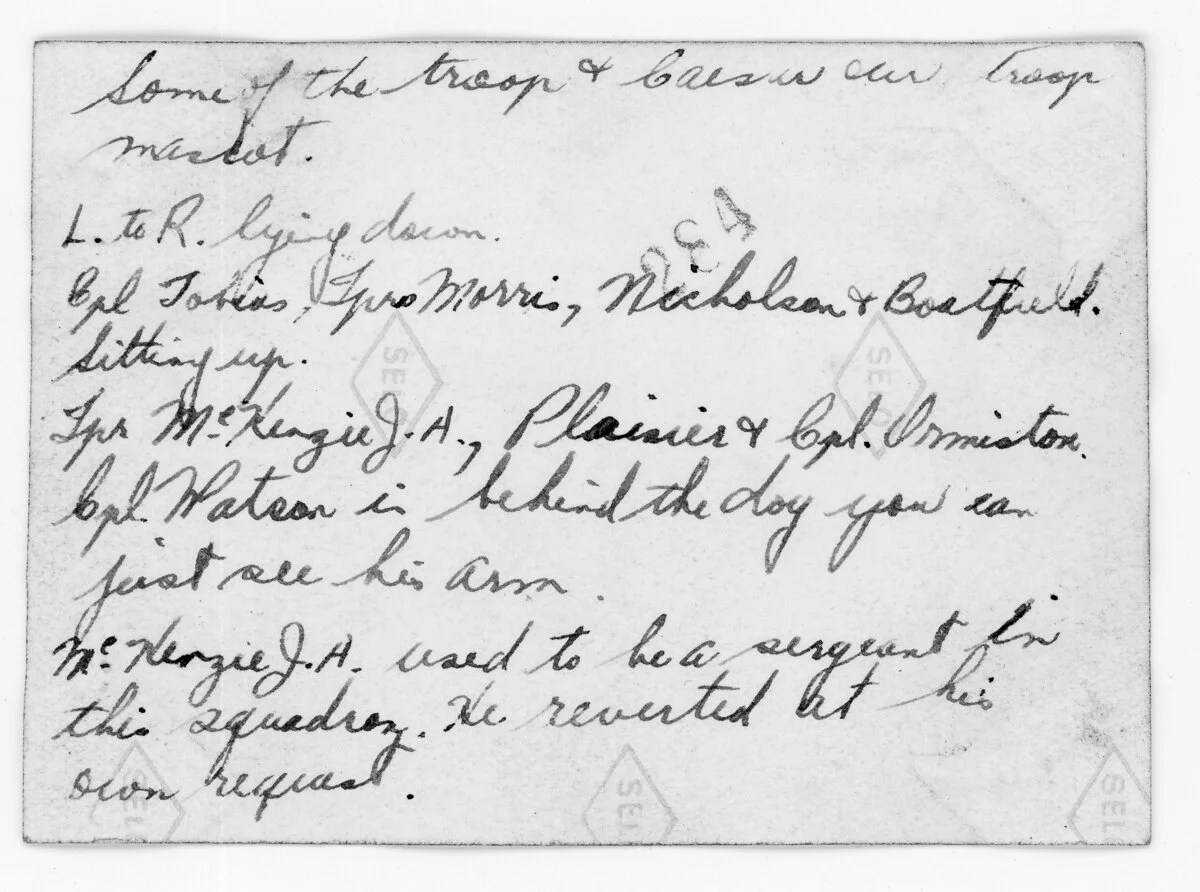 Some of the troop & Caesar our troop
mascot.
L. to R. lying down.
284
Cpl Tobias, Tprs Morris, Nicholson & Boatfield.
Sitting up.
SELO SELO
Tpr McKenzie J.A., Plaisier & Cpl. Ormiston.
Cpl. Watson is behind the dog you can
just see his arm.
McKenzie J.A. used to be a sergeant in
this squadron. He reverted at his
own request.
SELO SELO SELO